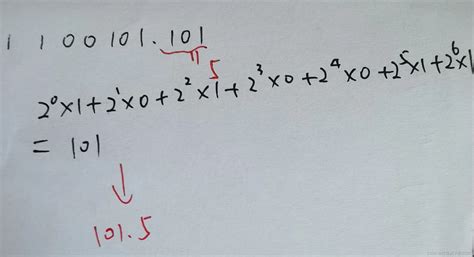 1 1 00101.101
5
2⁰×1+2¹×0+2²×1+2³×0+2⁴×0+2⁵×1+2⁶×1
= 101
↓
101.5